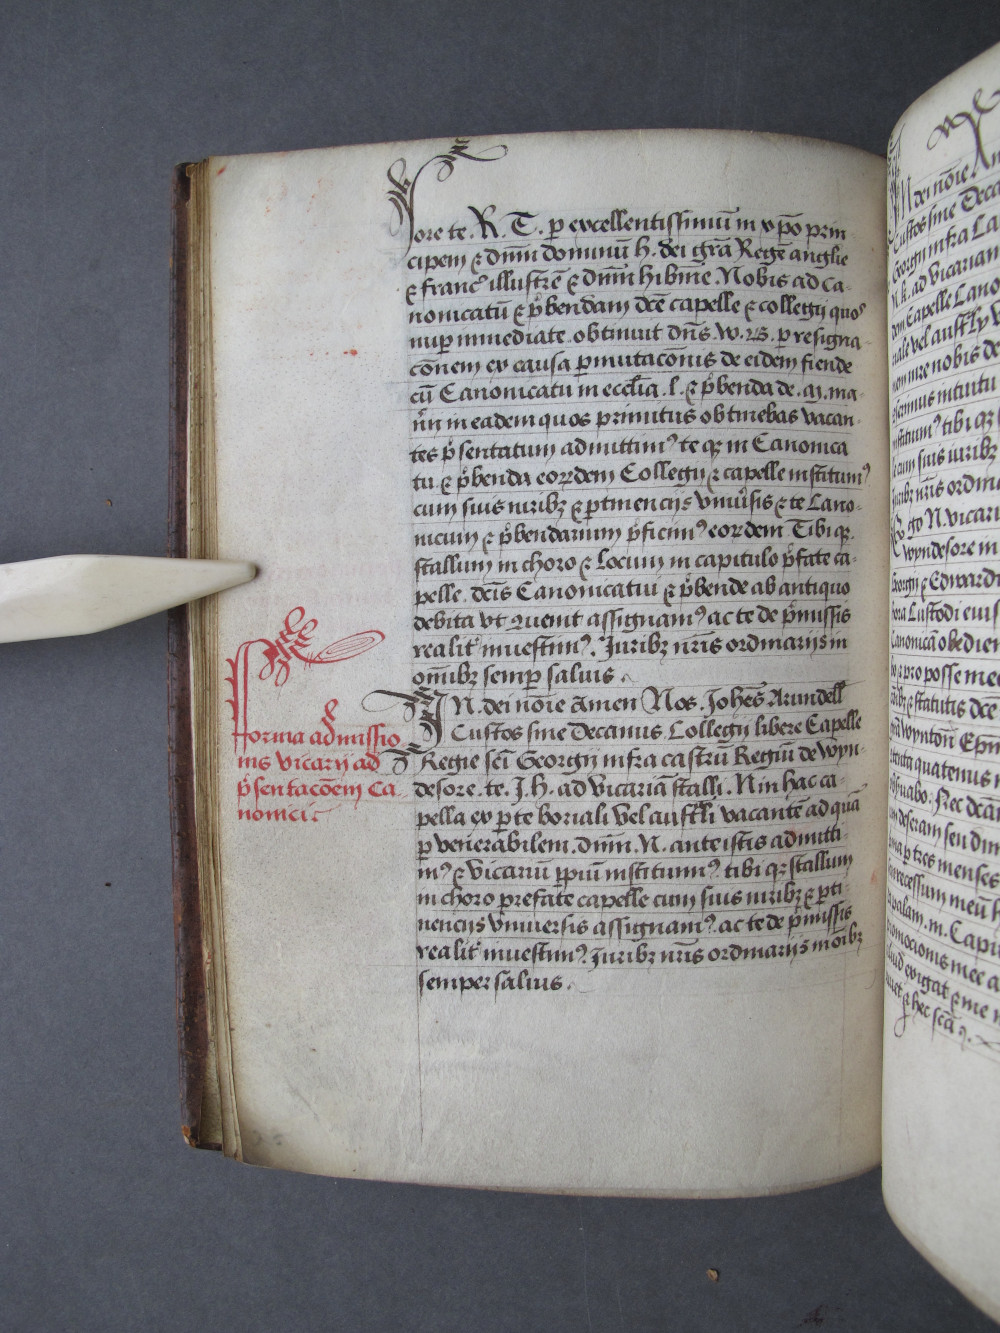 sore te. R. T. p excellentissimū in xpō prin
cipem & dnm̄ dominū h. dei grā Regē anglie
& franc̾ illustrē & dnm̄ hibnie. Nobis ad ca-
nonicatū & p̄bendam dc̄e capelle & collegij quos
nup immediate obtinuit dn̄s W. B. p resigna-
cōnem ex causa pmutacōnis de eidem fiende
cū Canonicatu in eccl̄ia .l. & p̄benda de .M. ma-
in eadem quos primitus obtinebas vacan-
tes p̄sentatum admittimꝰ te qꝫ in Canonica
tu & p̄benda eorꝝdem Collegij & capelle instituimꝰ
cum suis iuribꝫ & ptinencijs vniūsis & te Cano-
nicum & p̄bendarium p̄ficimꝰ eorꝝdem Tibi qꝫ
stallum in choro & Locum in capitulo p̄fate ca-
pelle. dc̄is Canonicatui & p̄bende ab antiquo
debita vt quenit assignamꝰ ac te de p̄missis
realit̾ inuestimꝰ. Juribꝫ nr̄is ordinarijs in
om̄ibꝫ semp saluis.
IN dei noīe Amen Nos. Joh̄es Arundell
Custos siue Decanus Collegij libere Capelle
Regie sc̄i Georgij infra castrū Regiū de Wyn-
desore. te. J. H. ad vicariā stalli. N in hac ca-
pella ex pte boriali vel austr̄li vacantē ad quā
p venerabilem. dnm̄. N. anteistis admitti-
mꝰ & vicariū ppiū instituimꝰ. tibi qꝫ stallum
in choro prefate capelle cum suis iuribꝫ & pti-
nencijs vniuersis assignamꝰ. ac te de p̄missis
realit̾ inuestimꝰ. Juribꝫ nr̄is ordinarijs in oībꝫ
semper saluis.
fforma admissio
nis vicarij ad
p̄sentacōem Ca
nonici
IN dei noīe Am
Custos siue Deca
Georgij infra Ca
N. k. ad vicariam
dem Capelle Cano
riale vel austr̄ly v
nem iure nobis de
intuitu
tibi qꝫ
cum suis iuribꝫ
Juribꝫ nr̄is ordina
Ego N. vicari
Wyndesore in
Georgij & Edwardi
hora Custodi eius
Canonicā obedien
& pro posse meo
& statutis dc̄e
Wyntōn Ep̄m
quatenus
Nec dcan
deseram seu dim
p tres menses
recessum meū
palam. m. Capit
omocionis mee a
exigat & me
& hec sc̄a